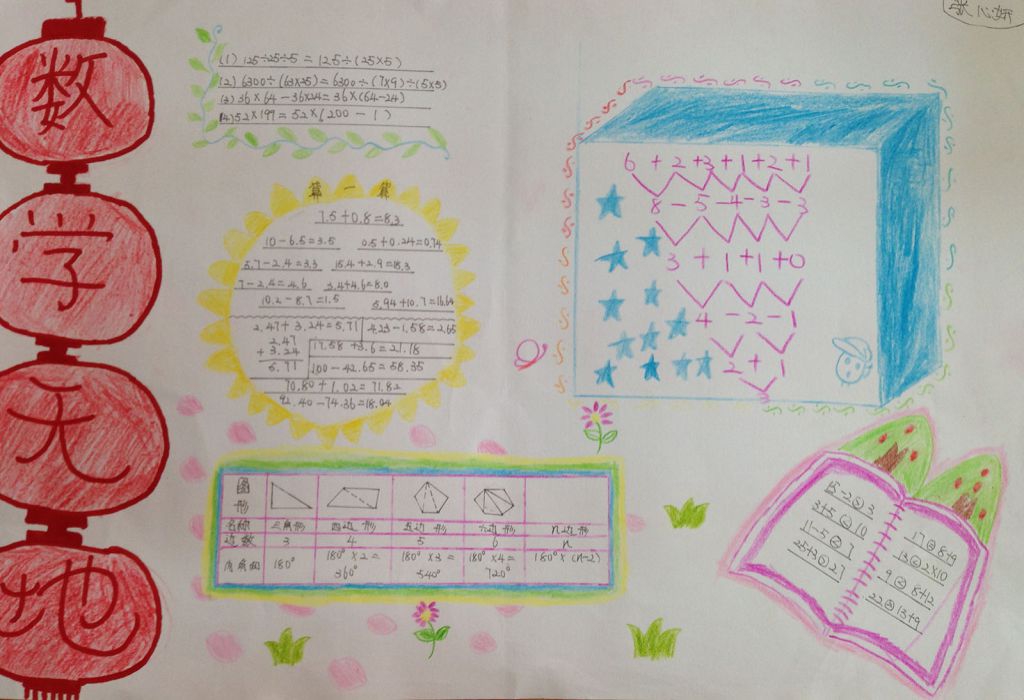 数
学
无
地
(1) 125÷25÷5=125÷(25×5)
(2) 6300÷(63×25)=6300÷(7×9)÷(5×5)
(3) 36×64-36×24=36×(64-24)
(4) 52×199=52×(200-1)
算一算
7.5+0.8=8.3
10-6.5=3.5 0.5+0.24=0.74
5.7-2.4=3.3 15.4+2.9=18.3
7-2.4=4.6 3.4+4.6=8.0
10.2-8.7=1.5 5.94+10.7=16.64
2.47+3.24=5.71 4.23-1.58=2.65
2.47
+3.24
5.71
17.58+3.6=21.18
100-42.65=58.35
70.80+1.02=71.82
92.40-74.36=18.04
6+2+3+1+2+1
8-5-4-3-3
3+1+1+0
4-2-1
2+1
图形
名称 三角形 四边形 五边形 六边形 n边形
边数 3 4 5 6 n
内角和 180° 180°×2=360° 180°×3=540° 180°×4=720° 180°×(n-2)